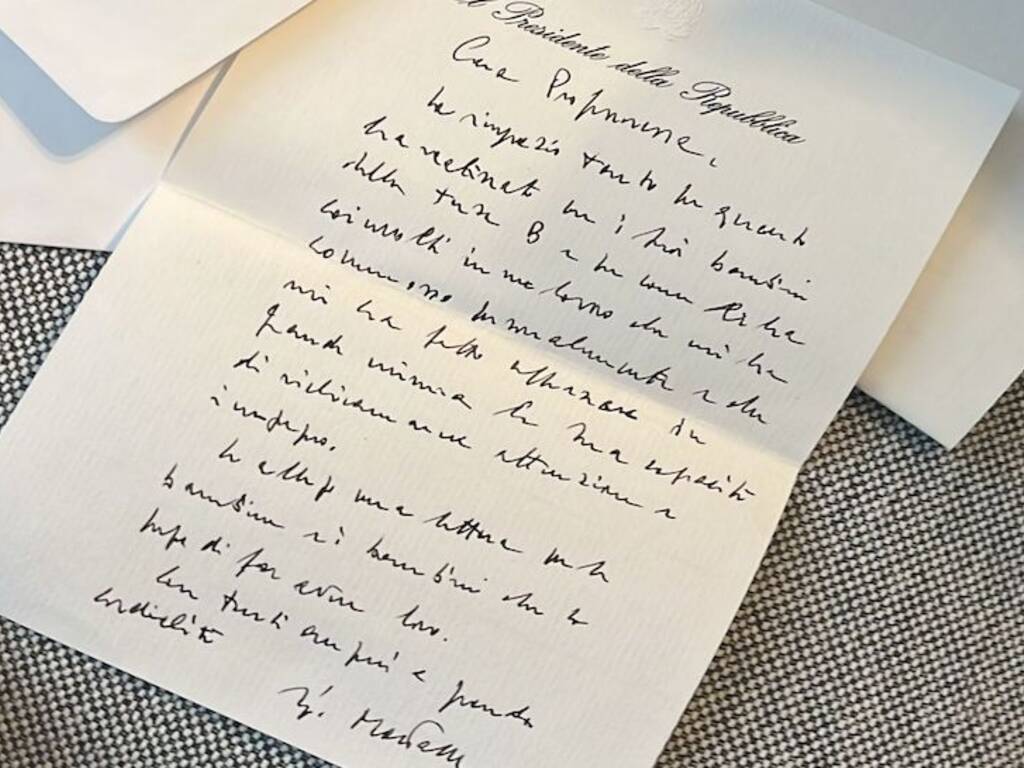 Il Presidente della Repubblica
Cara Professoressa,
la ringrazio tanto per quanto
ha realizzato con i suoi bambini
della B e per come
coinvolti in un lavoro che mi ha
commosso personalmente e che
mi ha fatto apprezzare in
grande misura la sua capacità
di richiamare attenzione e
impegno.
Le allego una lettera per le
bambine e i bambini che la
prego di far avere loro.
Con tanti auguri e grande
cordialità
Mattarella